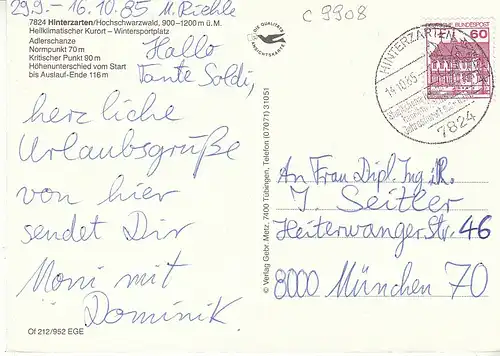 29.9. - 16.10.85 M. Riehle
C 9908
7824 Hinterzarten/Hochschwarzwald, 900-1200 m ü. M.
Heilklimatischer Kurort – Wintersportplatz
Adlerschanze
Normpunkt 70 m
Kritischer Punkt 90 m
Höhenunterschied vom Start
bis Auslauf-Ende 116 m
Hallo
Tante Soldi,
herzliche
Urlaubsgrüße
von hier
sendet Dir
Moni mit
Dominik.
Of 212/952 EGE
DIE QUALITÄTS
ANSICHTSKARTE
© Verlag Gebr. Metz, 7400 Tübingen, Telefon (07071) 31051
BUNDESPOST
60
HINTERZARTEN
14.10.85
7824
An Frau Dipl. Ing. i.R.
J. Seitler
Heiterwanger Str. 46
8000 München 70